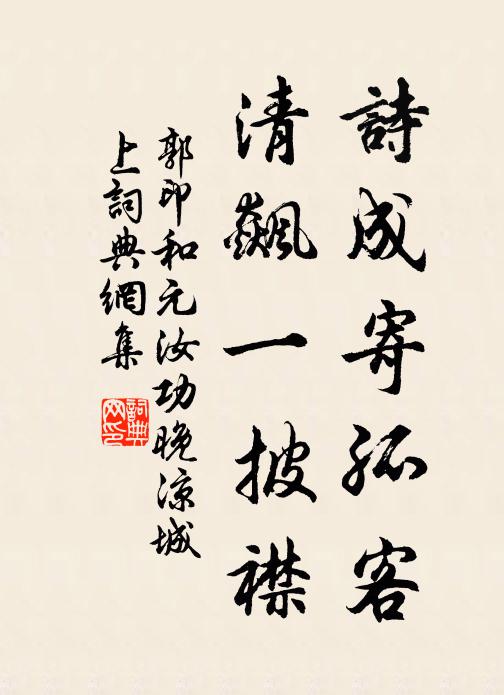 詩成寄孤客
清飆一披襟
郭印和元汝功晚涼城
上詞典網集
詞典
网印